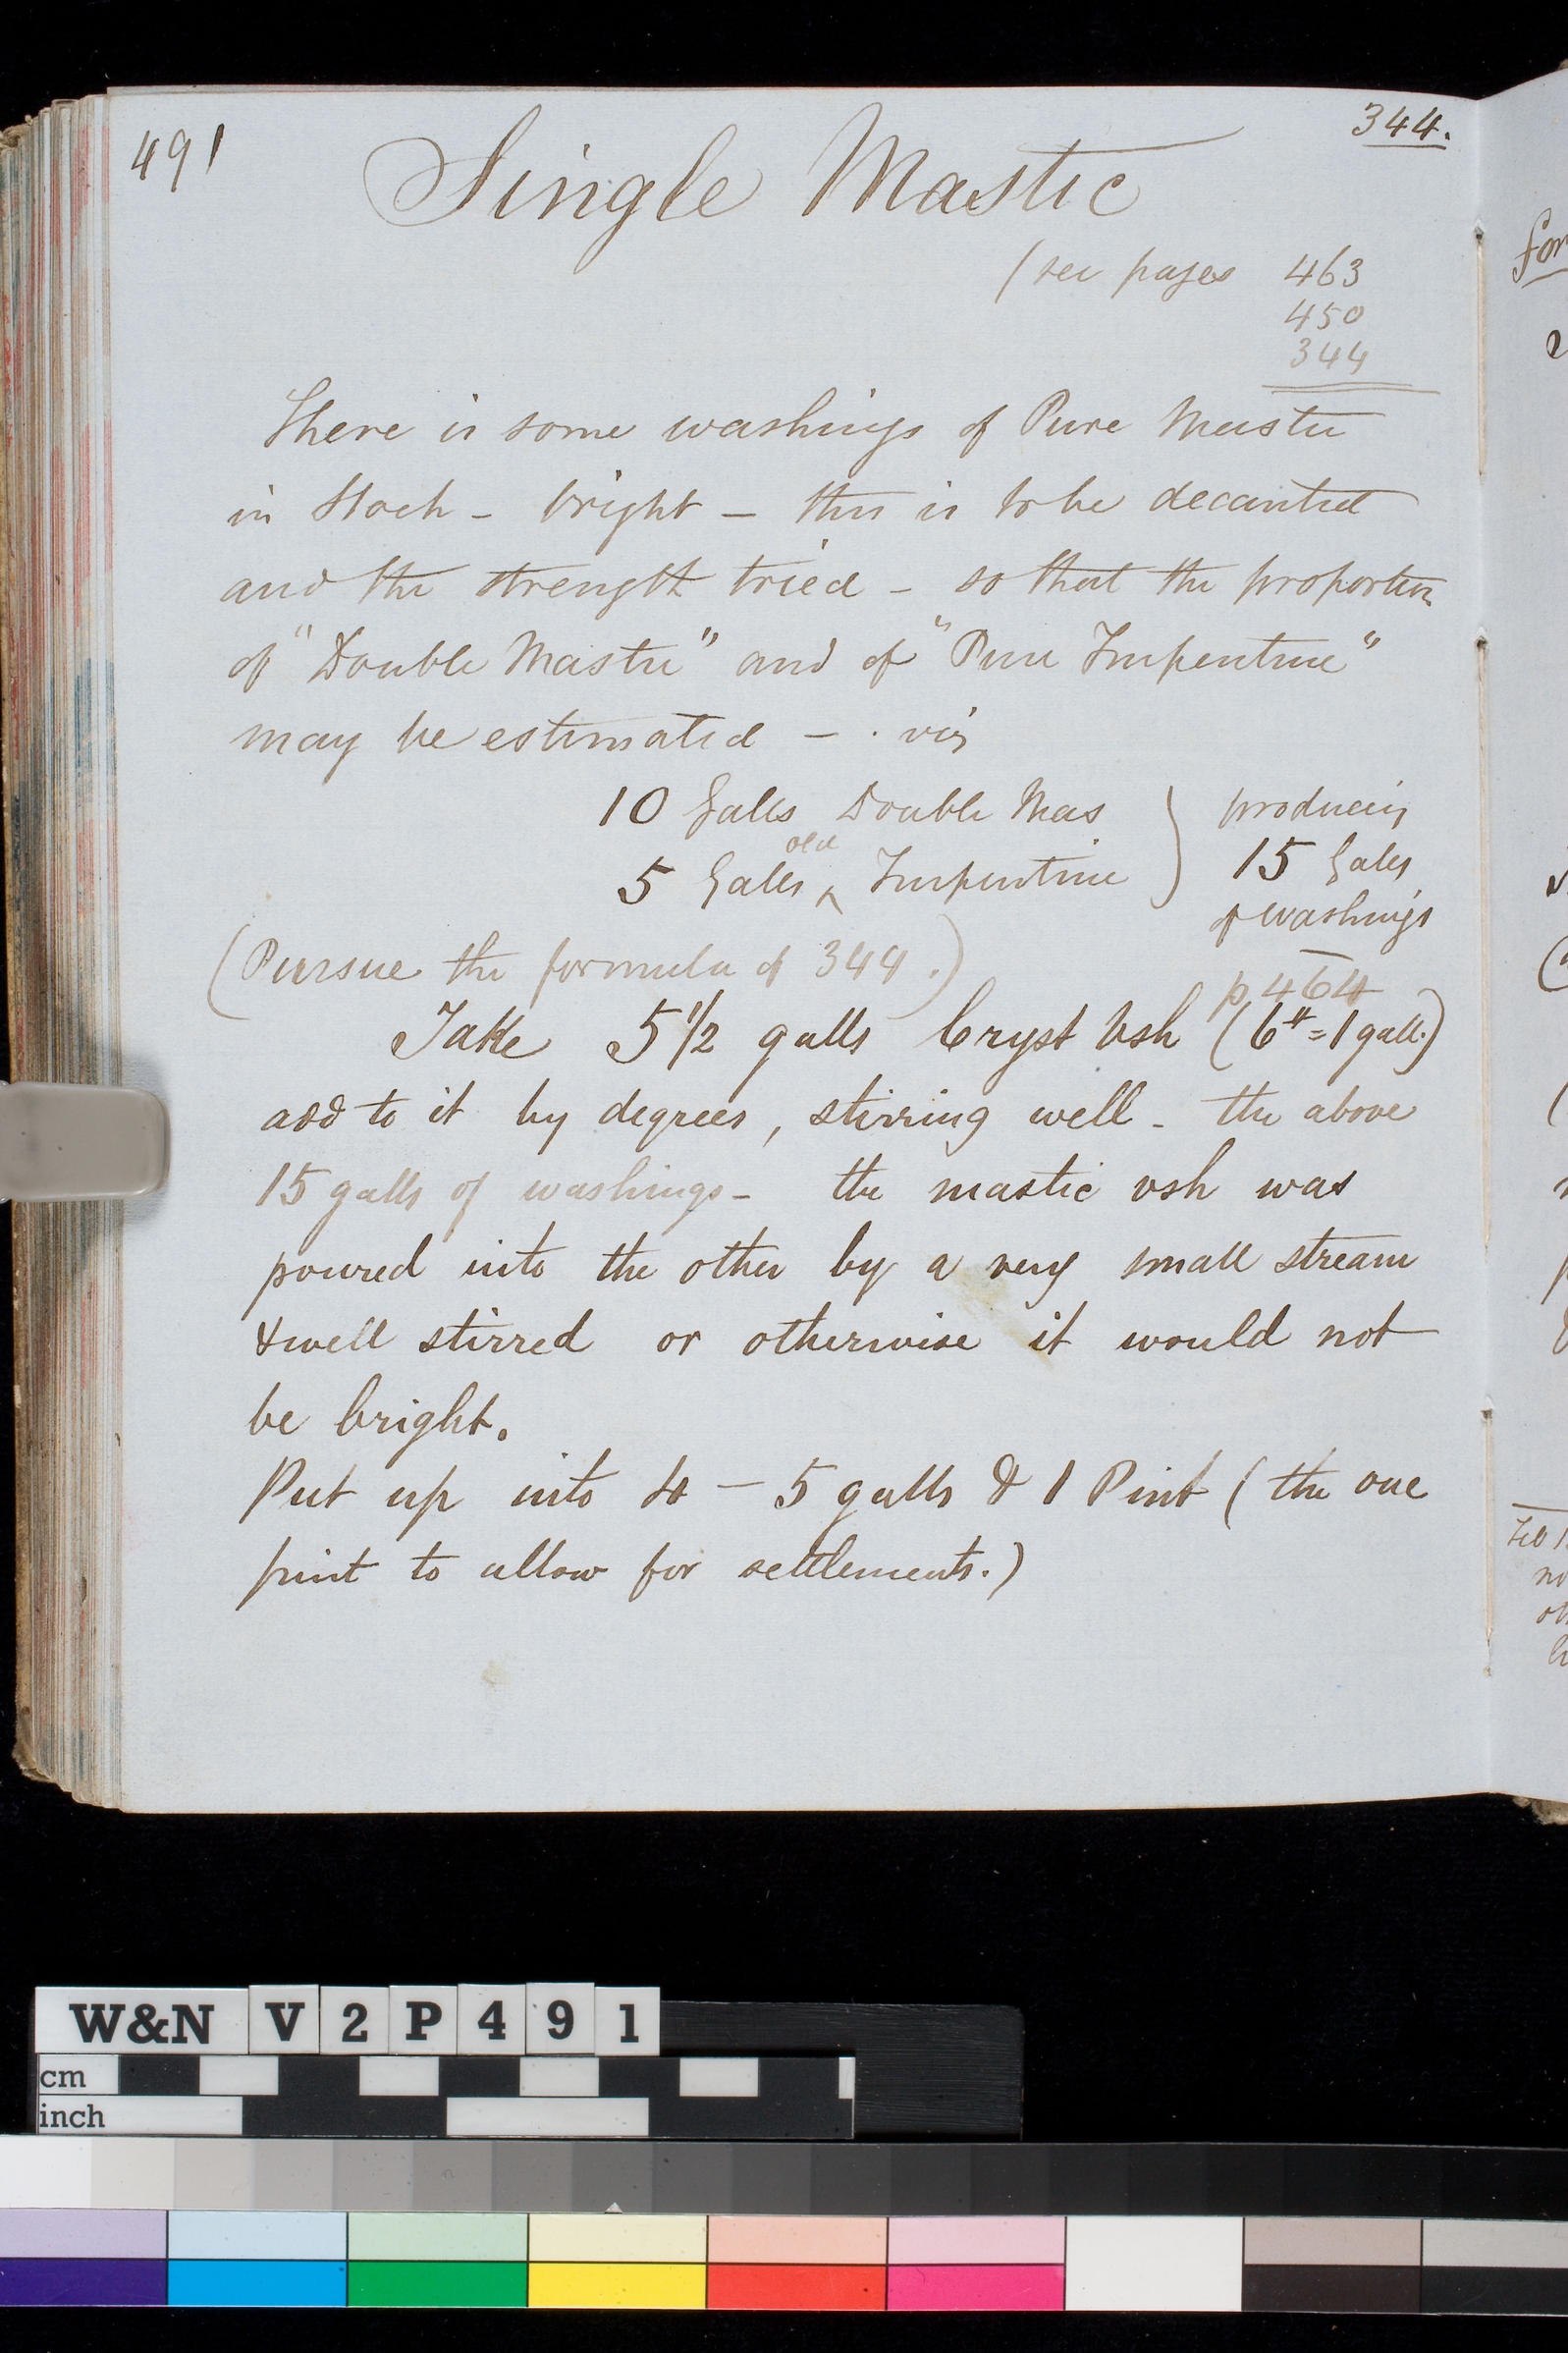 491
344.
Single Mastic
(see pages 463
450
344
There is some washings of Pure Mastic
in Stock – bright – this is to be decanted
and the strength tried – so that the proportion
of "Double Mastic" and of "Pure Turpentine"
may be estimated – . viz
10 Galls Double Mas } producing
old
5 Galls ‸ Turpentine } 15 Galls
of washings
(Pursue the formula of 344.)
p 464
Take 5 1/2 galls Cryst Vsh (6# = 1 gall.)
add to it by degrees, stirring well – the above
15 galls of washings – the mastic vsh was
poured into the other by a very small stream
& well stirred or otherwise it would not
be bright.
Put up into 4 – 5 galls & 1 Pint (the one
pint to allow for settlements.)
for
no
W&N V 2 P 4 9 1
cm
inch